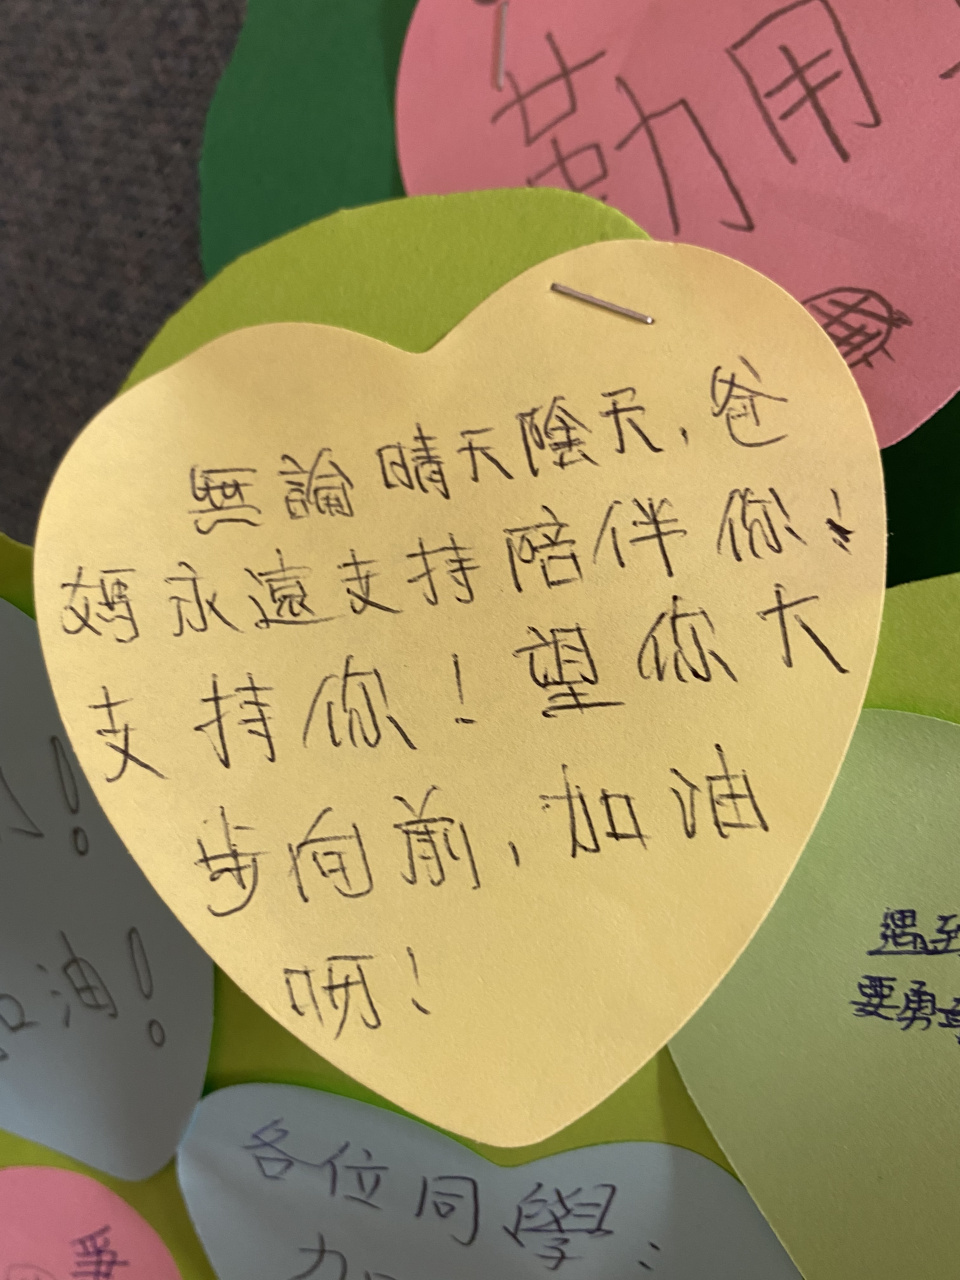 勤用
無論晴天陰天，爸
媽永遠支持陪伴你！
支持你！望你大
步向前，加油
呀！
！
加油！
遇到
要勇
各位同學：
加
爭